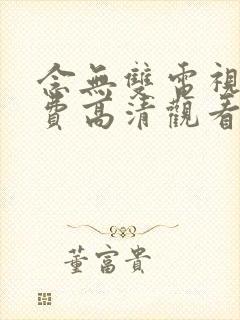 念無雙電視
費高清觀看
董富貴